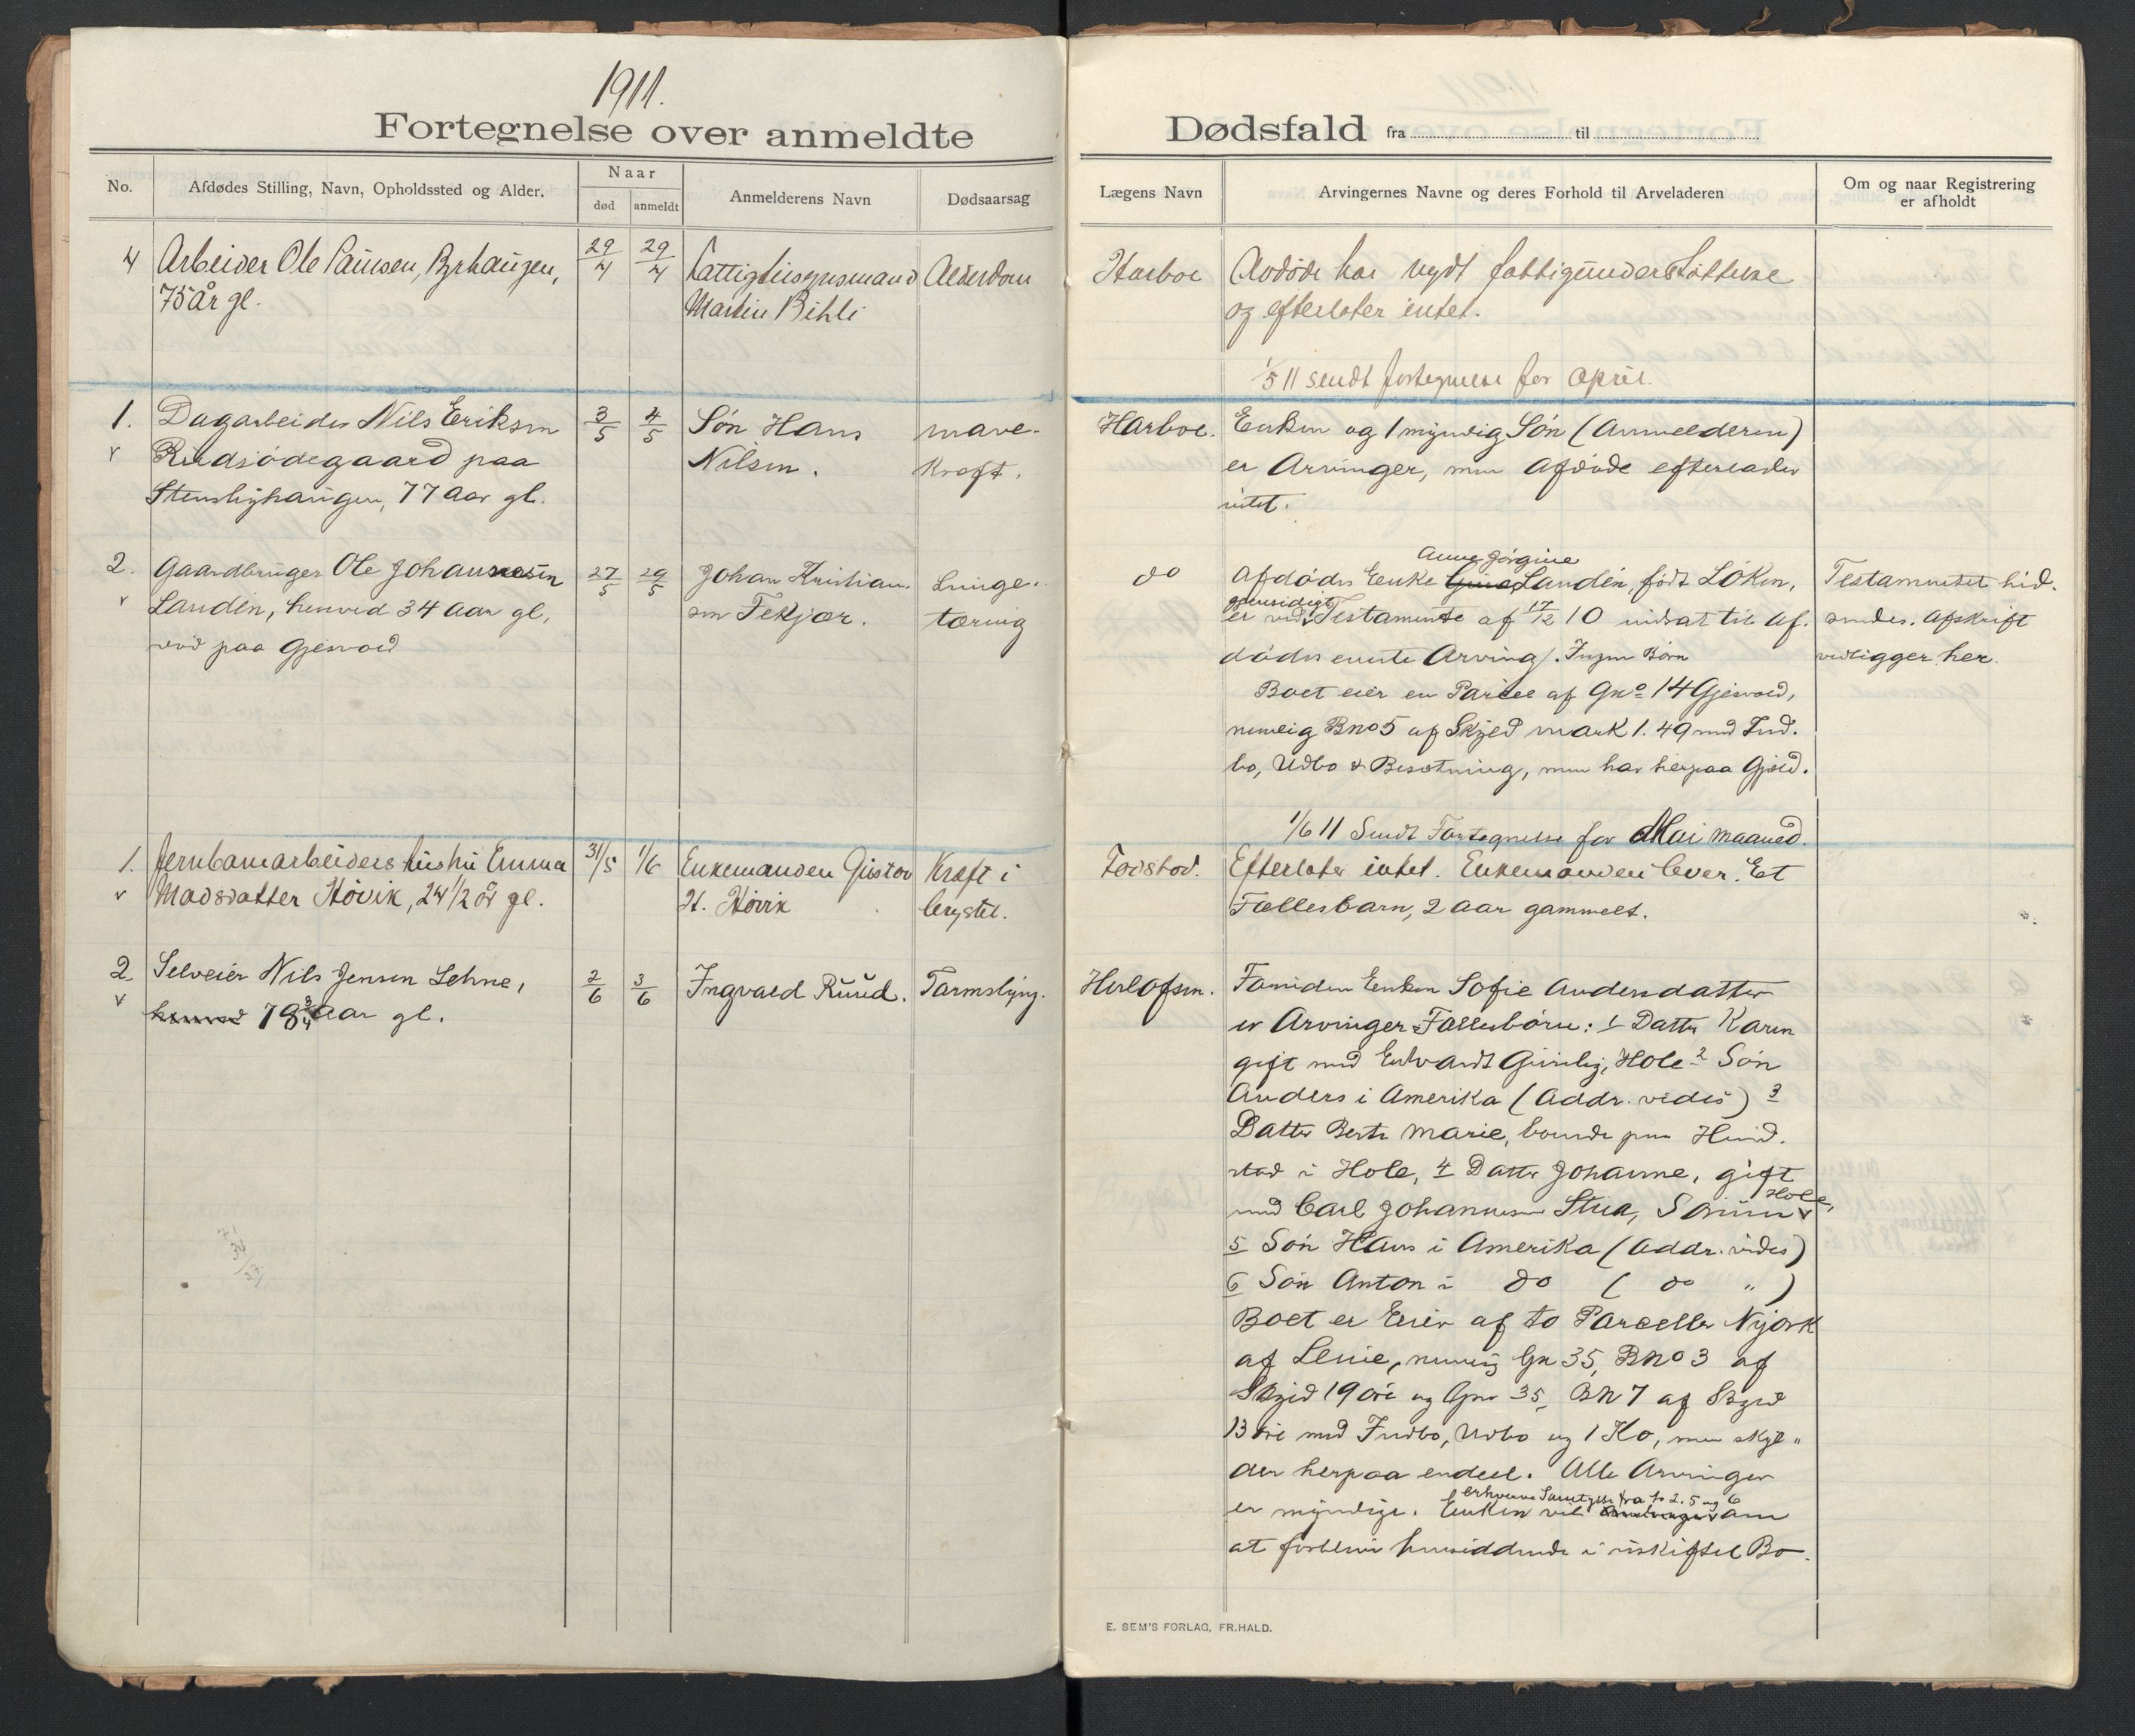 1911.
Fortegnelse over anmeldte
No.
Afdødes Stilling, Navn, Opholdssted og Alder.
Naar
død
anmeldt
Anmelderens Navn
Dødsaarsag
4
Arbeider Ole Paulsen, Byhaugen,
75 år gl.
29/4
29/4
Fattigtilsynsmand
Martin Bihli
Alderdom
1.
Dagarbeider Nils Eriksen
Rudsødegaard paa
Stenslyhaugen, 77 Aar gl.
3/5
4/5
Søn Hans
Nilsen.
mave-
kræft.
2.
Gaardbruger Ole Johannesen
Landén, henved 34 Aar gl,
død paa Gjesvold
27/5
29/5
Johan Kristian-
sen Tekjær.
Lunge-
tæring
1.
Jernbanearbeiders hustru Emma
Madsdatter Høvik, 24 1/2 år gl.
31/5
1/6
Enkemanden Gustav
H. Høvik
Kræft i
brystet.
2
Selveier Nils Jensen Lehne,
henved 78 3/4 Aar gl.
2/6
3/6
Ingvald Ruud.
Tarmslyng.
Dødsfald fra til
Lægens Navn
Arvingernes Navne og deres Forhold til Arveladeren
Om og naar Registrering
er afholdt
Harboe
Avdøde har nydt fattigunderstøttelse
og efterlater intet.
1/5 11 sendt fortegnelse for April.
Harboe.
Enken og 1 myndig Søn (Anmelderen)
er Arvinger, men Afdøde efterlader
intet.
do
Anne Jørgine
Afdødes Enke Gina Landén, født Løken,
gjensidigt
er ved Testamente af 17/12 10 indsat til Af-
dødes eneste Arving. Ingen Børn
Boet eier en Parcel af Gno 14 Gjesvold,
nemlig Bno 5 af Skyld mark 1.49 med Ind-
bo, Udbo & Besætning, men har herpaa Gjæld.
Testamentet hid-
sendes. Afskrift
vedligger her.
1/6 11 Sendt Fortegnelse for Mai maaned.
Efterlater intet. Enkemanden lever. Et
Fællesbarn, 2 aar gammelt.
Herlofsen.
Foruden Enken Sofie Andersdatter
er Arvinger Fællesbørn: 1 Datter Karen
gift med Edvardt Hole 2 Søn
Anders i Amerika (Addr. vides) 3
Datter Berte Marie, boende paa Hund-
stad i Hole, 4 Datter Johanne, gift
Hole,
med Carl Johannesen Stua,
5 Søn Hans i Amerika (Addr. vides)
6 Søn Anton i do ( do " )
Boet er Eier af to Parceller Nyjork
af Lenie, nemlig Gn 35, Bno 3 af
Skyld 19 øre og Gno 35, BN 7 af Skyld
13 øre med Indbo, Udbo og 1 Ko, men skyl-
der herpaa endeel. Alle Arvinger
erhverve Samtykke fra No 2. 5 og 6
er myndige. Enken vil om
at forblive hensiddende i uskiftet Bo.
E. SEM'S FORLAG, FR.HALD.